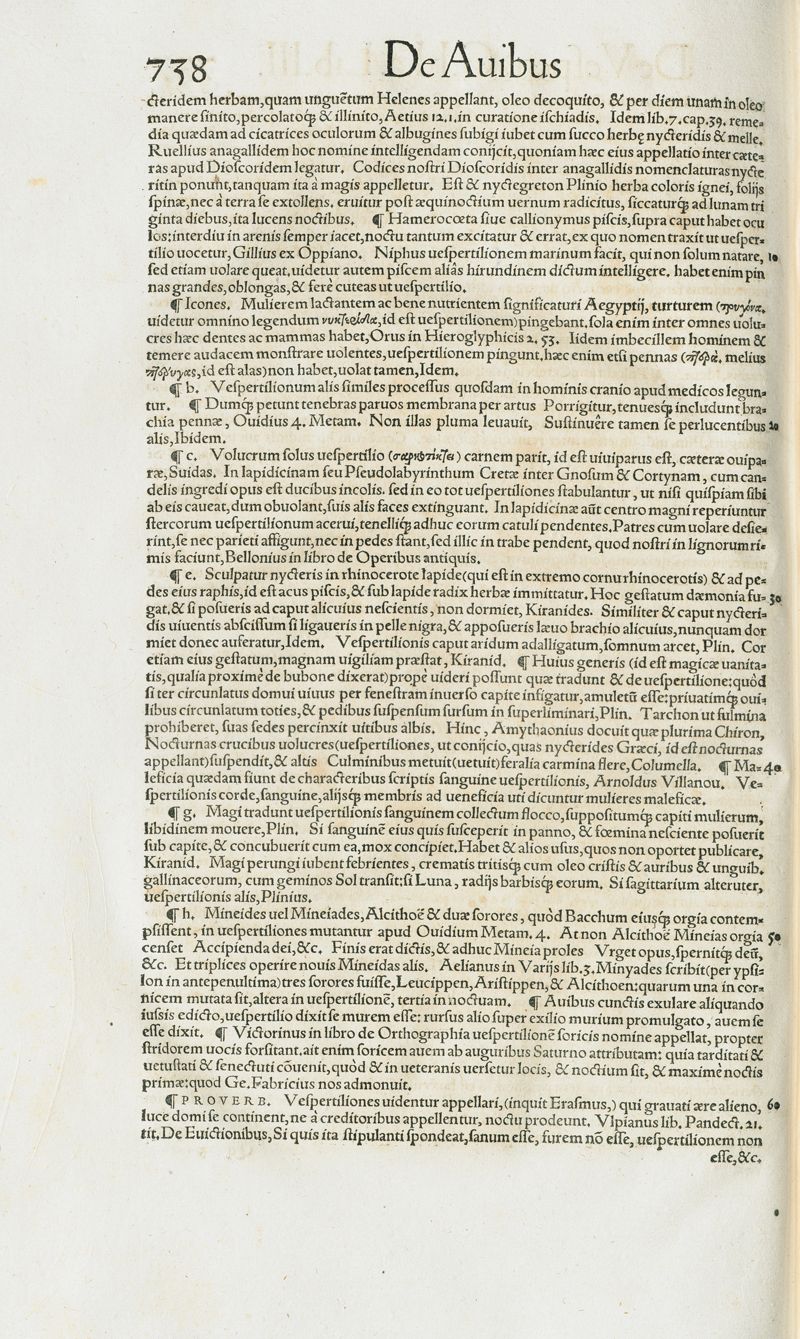 738
De Auibus
cteridem herbam, quam unguẽtum Helenes appellant, oleo decoquito, & per diem unam in oleo
manere ſinito, percolatoq́; & illinito, Aetius 12.1. in curatione iſchiadis. Idem lib. 7. cap. 39. reme-
dia quædam ad cicatrices oculorum & albugines ſubigi iubet cum ſucco herbę nycteridis & melle.
Ruellius anagallidem hoc nomine intelligendam conijcit, quoniam hæc eius appellatio inter cæte-
ras apud Dioſcoridem legatur. Codices noſtri Dioſcoridis inter anagallidis nomenclaturas nycte
ritin ponunt, tanquam ita à magis appelletur. Eſt & nyctegreton Plinio herba coloris ignei, folijs
ſpinæ, nec à terra ſe extollens. eruitur poſt æquinoctium uernum radicitus, ſiccaturq́; ad lunam tri
ginta diebus, ita lucens noctibus. ¶ Hamerocœta ſiue callionymus piſcis, ſupra caput habet ocu
los: interdiu in arenis ſemper iacet, noctu tantum excitatur & errat, ex quo nomen traxit ut ueſper-
tilio uocetur, Gillius ex Oppiano. Niphus ueſpertilionem marinum facit, qui non ſolum natare, 10
ſed etiam uolare queat. uidetur autem piſcem aliâs hirundinem dictum intelligere. habet enim pin
nas grandes, oblongas, & ferè cuteas ut ueſpertilio.
¶ Icones. Mulierem lactantem ac bene nutrientem ſignificaturi Aegyptij, turturem (τρυγόνα,
uidetur omnino legendum νυκτερίδα, id eſt ueſpertilionem) pingebant. ſola enim inter omnes uolu-
cres hæc dentes ac mammas habet, Orus in Hieroglyphicis 2. 53. Iidem imbecillem hominem &
temere audacem monſtrare uolentes, ueſpertilionem pingunt. hæc enim etſi pennas (πτερὰ, melius
πτέρυγας, id eſt alas) non habet, uolat tamen, Idem.
¶ b. Veſpertilionum alis ſimiles proceſſus quoſdam in hominis cranio apud medicos legun-
tur. ¶ Dumq́; petunt tenebras paruos membrana per artus Porrigitur, tenuesq́; includunt bra-
chia pennæ, Ouidius 4. Metam. Non illas pluma leuauit, Suſtinuêre tamen ſe perlucentibus 20
alis, Ibidem.
¶ c. Volucrum ſolus ueſpertilio (σαρκοτοκεῖ) carnem parit, id eſt uiuiparus eſt, cæteræ ouipa-
ræ, Suidas. In lapidicinam ſeu Pſeudolabyrinthum Cretæ inter Gnoſum & Cortynam, cum can-
delis ingredi opus eſt ducibus incolis. ſed in eo tot ueſpertiliones ſtabulantur, ut niſi quiſpiam ſibi
ab eis caueat, dum obuolant, ſuis alis faces extinguant. In lapidicinæ aũt centro magni reperiuntur
ſtercorum ueſpertilionum acerui, tenelliq́; adhuc eorum catuli pendentes. Patres cum uolare deſie-
rint, ſe nec parieti affigunt, nec in pedes ſtant, ſed illic in trabe pendent, quod noſtri in lignorum ri-
mis faciunt, Bellonius in libro de Operibus antiquis.
¶ e. Sculpatur nycteris in rhinocerote lapide (qui eſt in extremo cornu rhinocerotis) & ad pe-
des eius raphis, id eſt acus piſcis, & ſub lapide radix herbæ immittatur. Hoc geſtatum dæmonia fu- 30
gat, & ſi poſueris ad caput alicuius neſcientis, non dormiet, Kiranides. Similiter & caput nycteri-
dis uiuentis abſciſſum ſi ligaueris in pelle nigra, & appoſueris læuo brachio alicuius, nunquam dor
miet donec auferatur, Idem. Veſpertilionis caput aridum adalligatum, ſomnum arcet, Plin. Cor
etiam eius geſtatum, magnam uigiliam præſtat, Kiranid. ¶ Huius generis (id eſt magicæ uanita-
tis, qualia proximè de bubone dixerat) propè uideri poſſunt quæ tradunt & de ueſpertilione: quòd
ſi ter circunlatus domui uiuus per feneſtram inuerſo capite infigatur, amuletũ eſſe: priuatimq́; oui-
libus circunlatum toties, & pedibus ſuſpenſum ſurſum in ſuperliminari, Plin. Tarchon ut fulmina
prohiberet, ſuas ſedes percinxit uitibus albis. Hinc, Amythaonius docuit quæ plurima Chiron,
Nocturnas crucibus uolucres (ueſpertiliones, ut conijcio, quas nycterides Græci, id eſt nocturnas
appellant) ſuſpendit, & altis Culminibus metuit (uetuit) feralia carmina flere, Columella. ¶ Ma- 40
leficia quædam fiunt de characteribus ſcriptis ſanguine ueſpertilionis, Arnoldus Villanou. Ve-
ſpertilionis corde, ſanguine, alijsq́; membris ad ueneficia uti dicuntur mulieres maleficæ.
¶ g. Magi tradunt ueſpertilionis ſanguinem collectum flocco, ſuppoſitumq́; capiti mulierum,
libidinem mouere, Plin. Si ſanguinẽ eius quis ſuſceperit in panno, & fœmina neſciente poſuerit
ſub capite, & concubuerit cum ea, mox concipiet. Habet & alios uſus, quos non oportet publicare,
Kiranid. Magi perungi iubent febrientes, crematis tritisq́; cum oleo criſtis & auribus & unguib.
gallinaceorum, cum geminos Sol tranſit: ſi Luna, radijs barbisq́; eorum. Si ſagittarium alteruter,
ueſpertilionis alis, Plinius.
¶ h. Mineides uel Mineiades, Alcithoë & duæ ſorores, quòd Bacchum eiusq́; orgia contem-
pſiſſent, in ueſpertiliones mutantur apud Ouidium Metam. 4. At non Alcithoë Mineias orgia 50
cenſet Accipienda dei, &c. Finis erat dictis, & adhuc Mineia proles Vrget opus, ſpernitq́; deũ,
&c. Et triplices operire nouis Mineidas alis. Aelianus in Varijs lib. 3. Minyades ſcribit (per ypſi-
lon in antepenultima) tres ſorores fuiſſe, Leucippen, Ariſtippen, & Alcithoen: quarum una in cor-
nicem mutata ſit, altera in ueſpertilionẽ, tertia in noctuam. ¶ Auibus cunctis exulare aliquando
iuſsis edicto, ueſpertilio dixit ſe murem eſſe: rurſus alio ſuper exilio murium promulgato, auem ſe
eſſe dixit. ¶ Victorinus in libro de Orthographia ueſpertilionẽ ſoricis nomine appellat, propter
ſtridorem uocis forſitant. ait enim ſoricem auem ab auguribus Saturno attributam: quia tarditati &
uetuſtati & ſenectuti cõuenit, quòd & in ueteranis uerſetur locis, & noctium ſit, & maximè noctis
primæ: quod Ge. Fabricius nos admonuit.
¶ PROVERB. Veſpertiliones uidentur appellari, (inquit Eraſmus,) qui grauati ære alieno, 60
luce domi ſe continent, ne à creditoribus appellentur, noctu prodeunt. Vlpianus lib. Pandect. 21.
tit. De Euictionibus, Si quis ita ſtipulanti ſpondeat, ſanum eſſe, furem nõ eſſe, ueſpertilionem non
eſſe, &c.